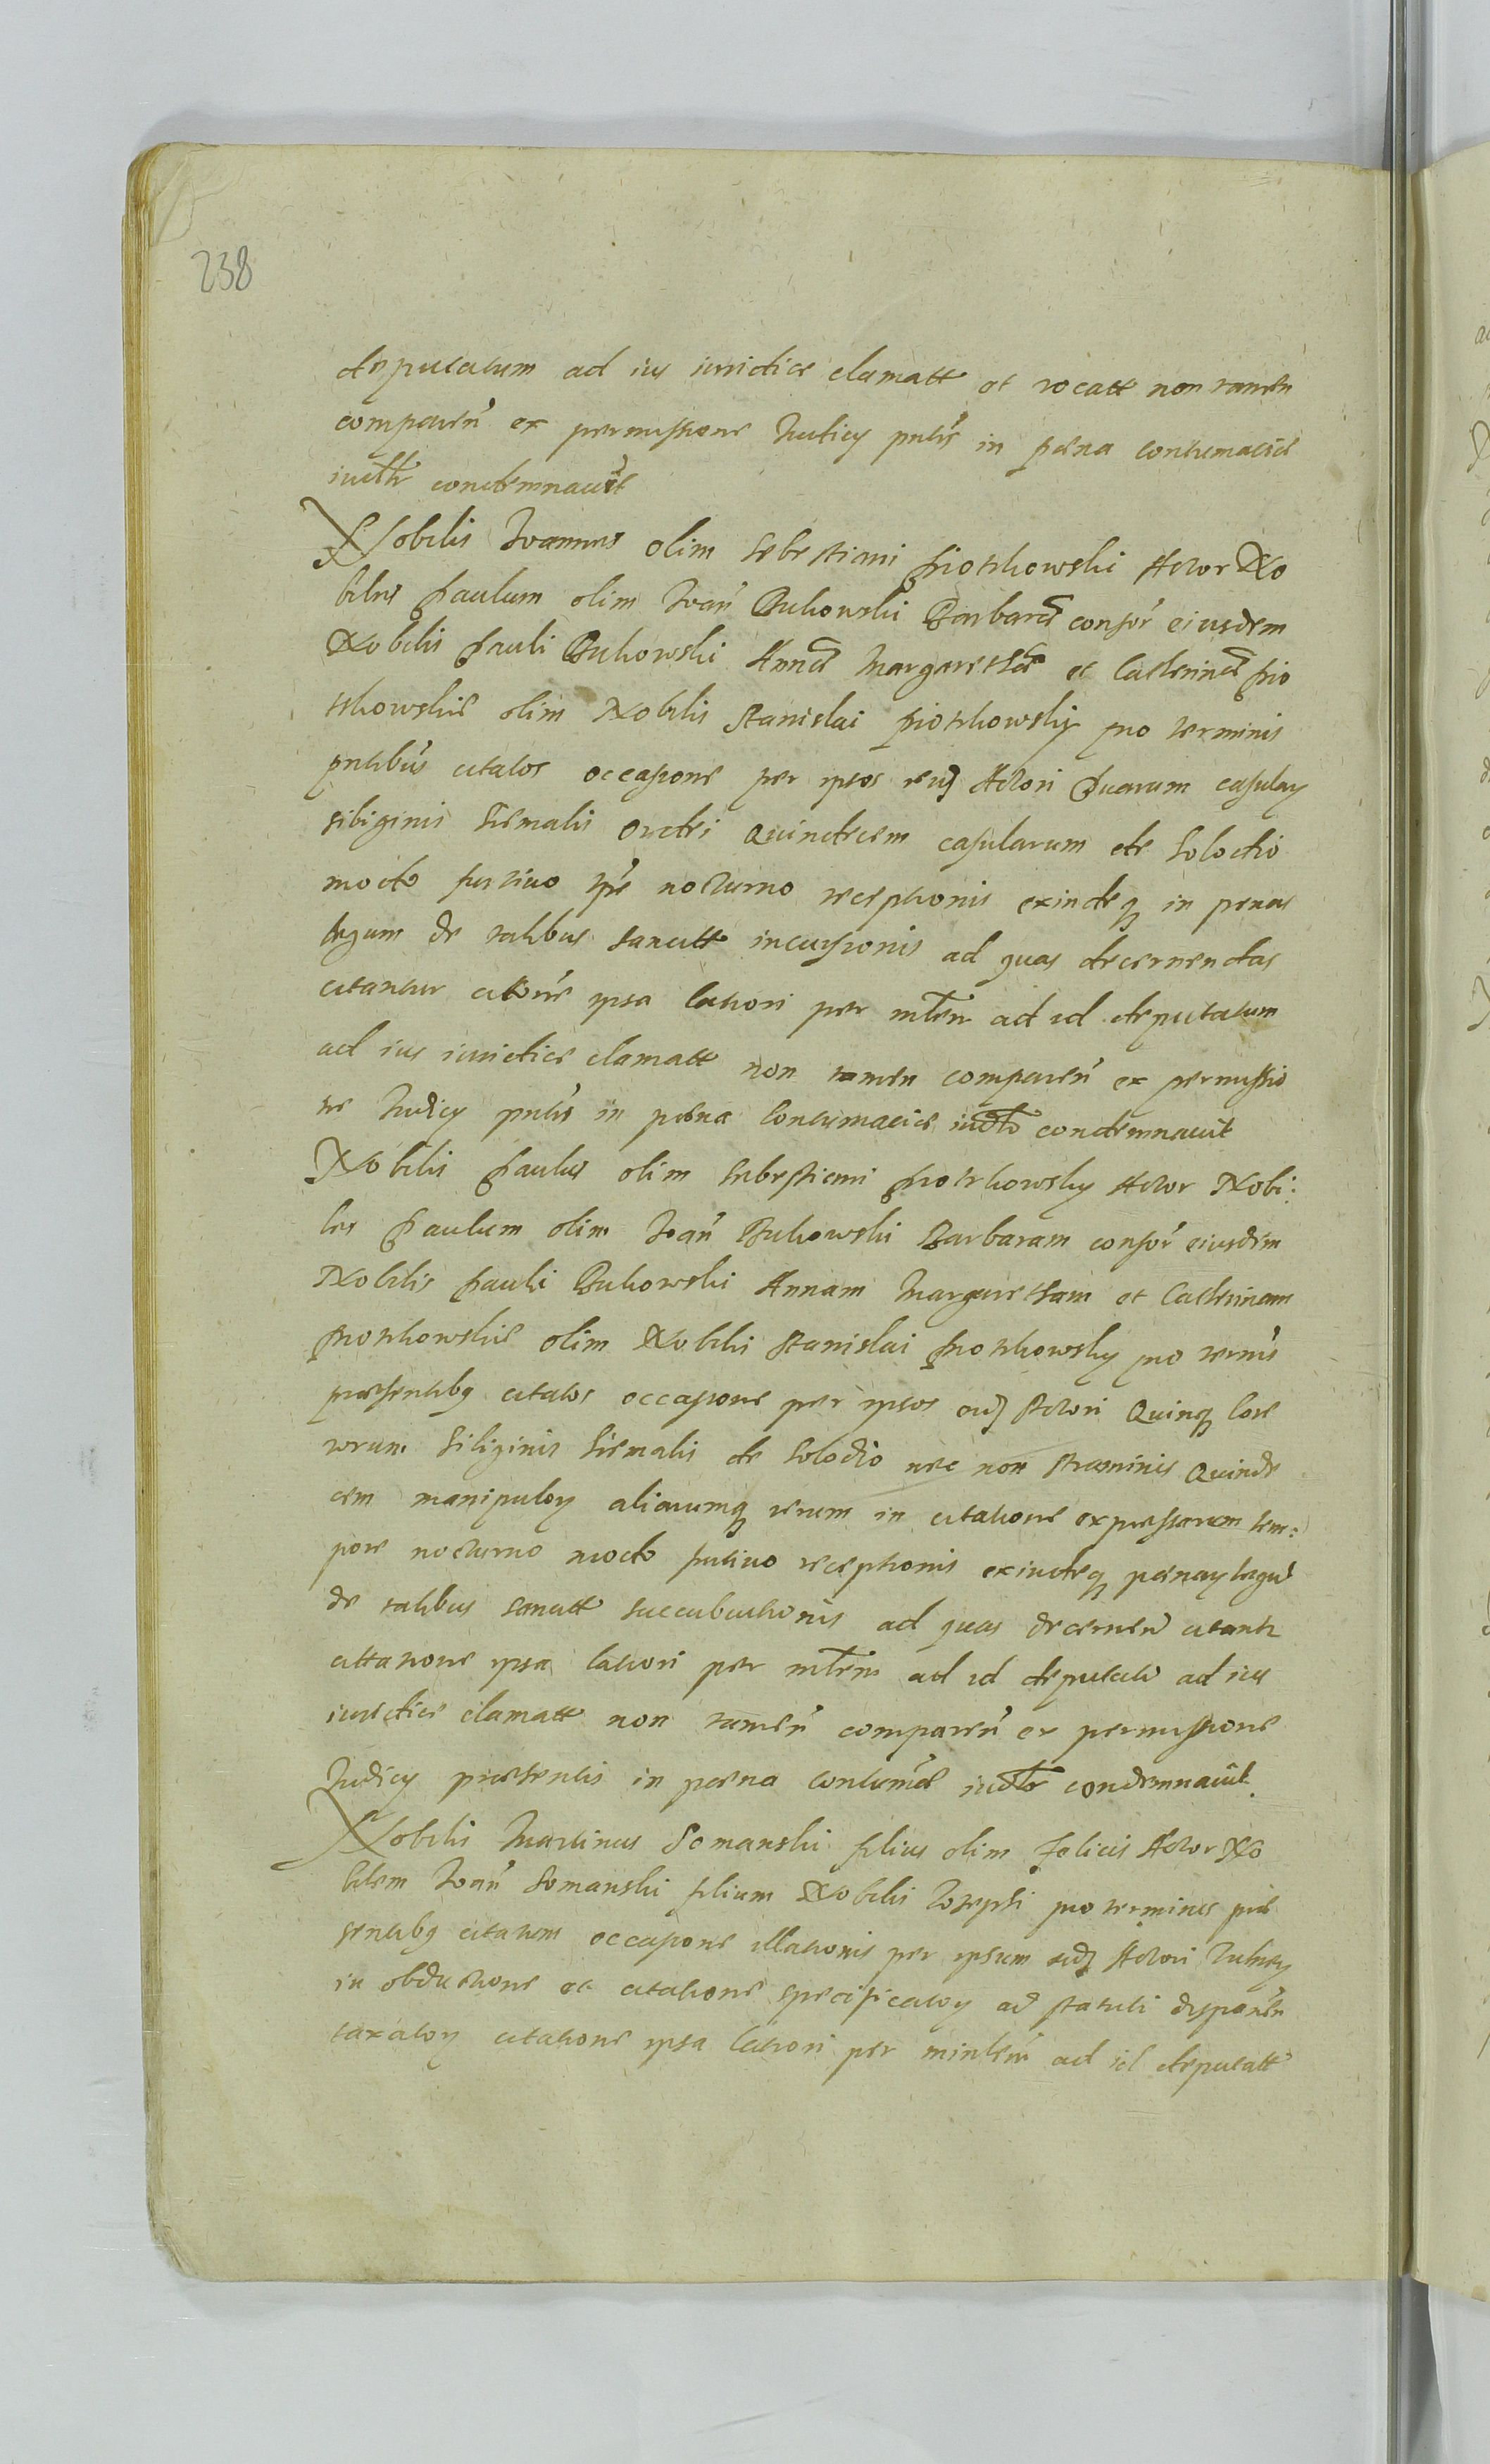 238
deputatum ad ius iuridice clamatt et vocatt non tamen
comparen ex permissione Iudicy pntis in pæna contumaciæ
iudtr condemnauit
Nobilis Ioannes olim Sebestiani Piotrkowski Actor No
biles Paulum olim Ioan Bukowski Barbarā consor eiusdem
Nobilis Pauli Bukowski Annā Margarethā et Catherinā Pio
trkowskie olim Nobilis Stanislai Piotrkowsky pro terminis
pntibus citatos occasione per ipsos eidē Actori Duarum casulary
siliginis hiemalis ordei Quindecem casularum de Solodio
modo furtiuo tpre nocturno receptionis exindeq in penas
legum de talibus sancitt incursionis ad quas decernendas
citantur citōne ipsa latiori per mlem ad id deputatum
ad ius iuridice clamatt non tamen comparen ex permissio
ne Iudicy pntis in pæna contumaciæ iudtr condemnauit
Nobilis Paulus olim Sebestiani Piotrkowsky Actor Nobi:
les Paulum olim Ioan Bukowski Barbaram consor eiusdem
Nobilis Pauli Bukowski Annam Margaretham et Catherinam
Piotrkowskie olim Nobilis Stanislai Piotrkowsky pro termis
præsentibq citatos occasione per ipsos eidē Actori Quinq Core
torum Siliginis hiemalis de Solodio nec non straminis Quinde
cem manipulory aliarumq rerum in citatione expressarum tem:
pore nocturno modo furtiuo receptionis exindeq pænary legū
de talibus sancitt succubitionis ad quas decernen citantr
cittatione ipsa latiori per mlem ad id deputatū ad ius
iuridice clamatt non tamen comparen ex permissione
Iudicy præsentis in pæna contumæ iudtr condemnauit.
Nobilis Martinus Somanski filius olim Felicis Actor No
bilem Ioan Somanski filium Nobilis Iosephi pro terminis præ
sentibq citatum occasione illationis per ipsum eidē Actori Vulnery
in obductione et citatione specificatory ad statuti disponen
taxatory citatione ipsa latiori per minlem ad id deputatt